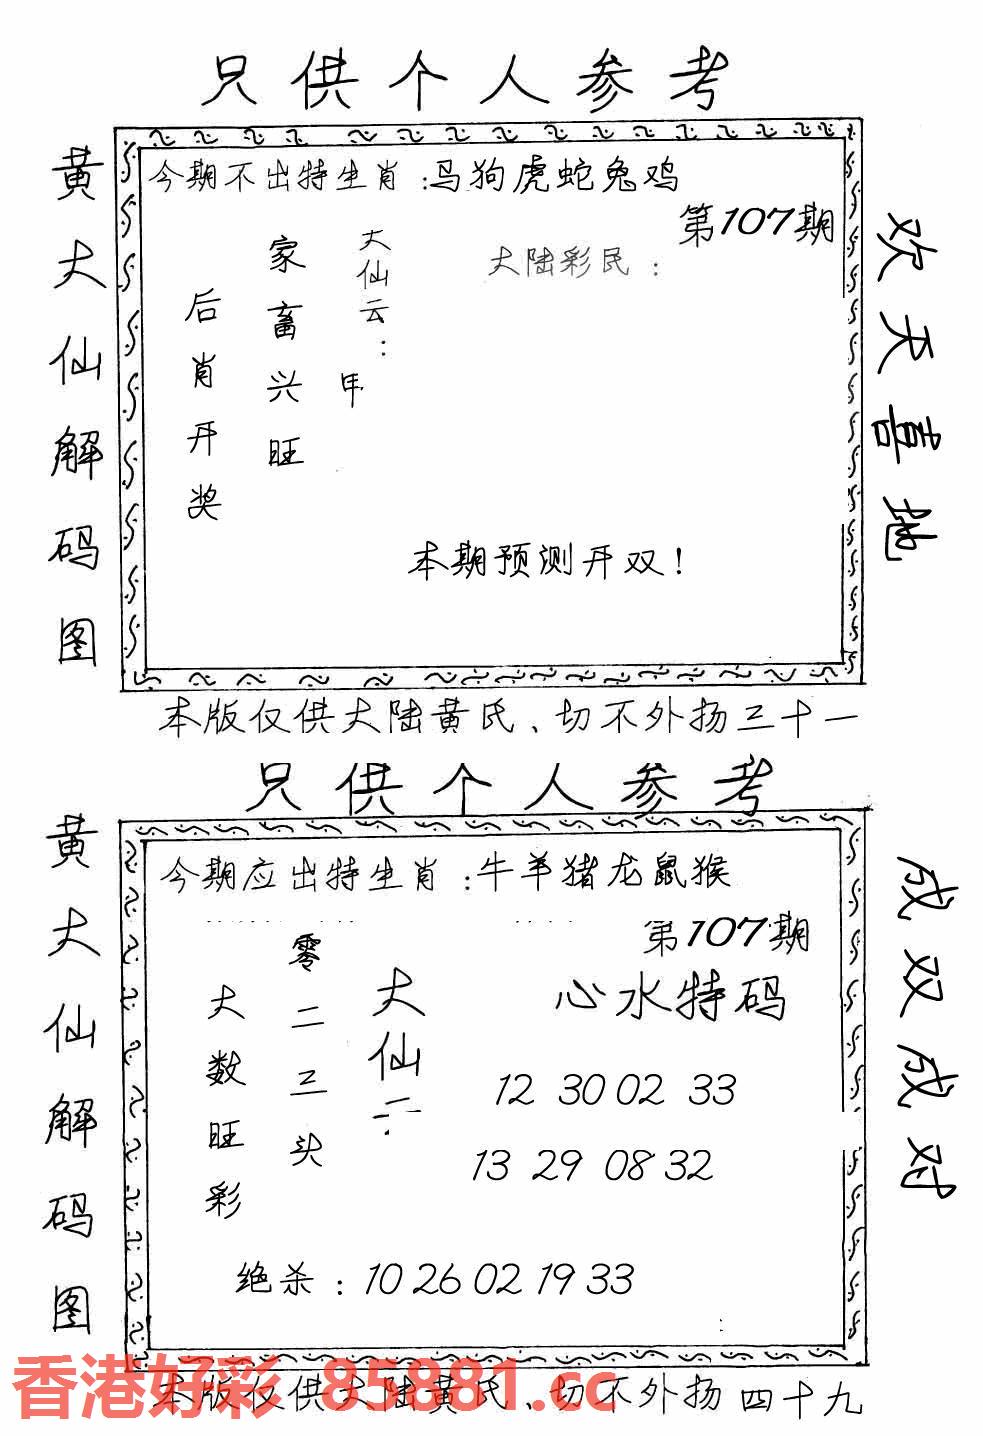 只供个人参考
黄大仙解码图
今期不出特生肖:马狗虎蛇兔鸡
第107期
大陆彩民:
大仙云:
甲
家畜兴旺
后肖开奖
本期预测开双!
欢天喜地
本版仅供大陆黄氏、切不外扬三十一
只供个人参考
黄大仙解码图
今期应出特生肖:牛羊猪龙鼠猴
第107期
心水特码
大仙云:
零二三头
大数旺彩
12 30 02 33
13 29 08 32
绝杀:10 26 02 19 33
成双成对
香港好彩 85881.cc
本版仅供大陆黄氏、切不外扬四十九